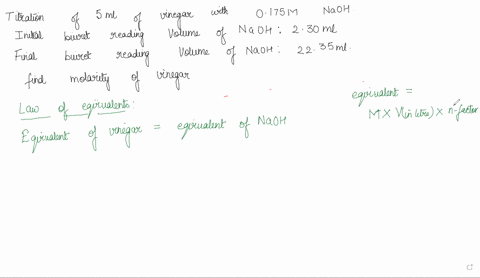 Titration of 5 ml of vinegar with 0.175 M NaOH
Initial buret reading Volume of NaOH : 2.30 ml
Final buret reading Volume of NaOH : 22.35 ml.
find molarity of vinegar
Law of equivalents:
Equivalent of vinegar = equivalent of NaOH
equivalent =
M X V(in litre) X n-factor